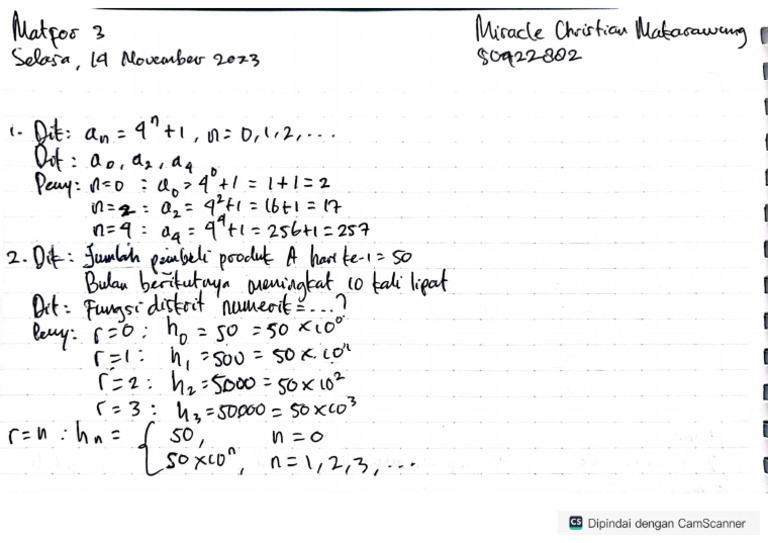 Matfor 3
Miracle Christian Makarawung
Selasa, 14 November 2023
50922802
1. Dit: aₙ = 4ⁿ+1, n = 0,1,2, ...
Dit: a₀, a₂, a₄
Peny: n=0 : a₀ = 4⁰+1 = 1+1 = 2
n=2 : a₂ = 4²+1 = 16+1 = 17
n=4 : a₄ = 4⁴+1 = 256+1 = 257
2. Dik: Jumlah pembeli produk A hari ke-1 = 50
Bulan berikutnya meningkat 10 kali lipat
Dit: Fungsi diskrit numerik = ...?
Peny: r=0 : h₀ = 50 = 50 × 10⁰
r=1 : h₁ = 500 = 50 × 10¹
r=2 : h₂ = 5000 = 50 × 10²
r=3 : h₃ = 50000 = 50 × 10³
r=n : hₙ = { 50, n = 0
50 × 10ⁿ, n = 1, 2, 3, ...
CS Dipindai dengan CamScanner